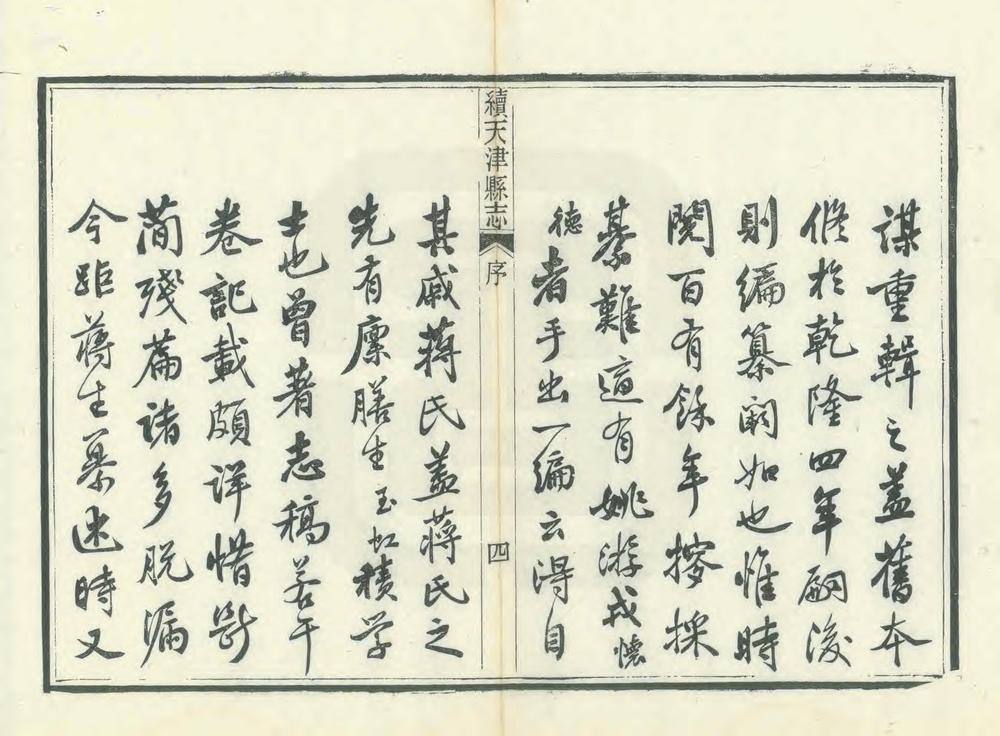 謀重輯之蓋舊本
修於乾隆四年嗣後
則編纂闕如也惟時
閱百有餘年搜採
綦難適有姚游戎懷
德者手出一編云得自
續天津縣志 序 四
其戚蔣氏蓋蔣氏之
先有廩膳生玉虹積学
士也曾著志稿若干
卷記載頗詳惜斷
簡殘篇諸多脱漏
今距蔣生纂述時又